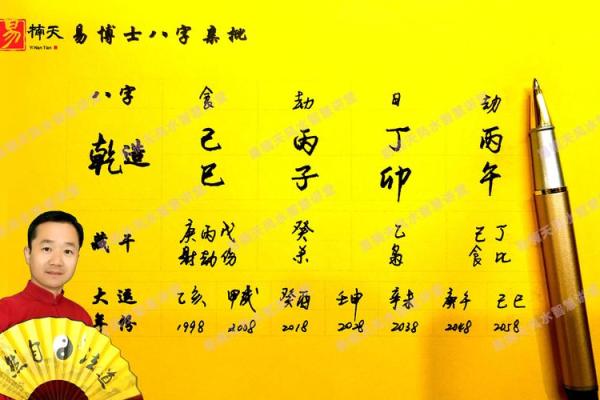 易 楠天 易博士八字集批
Yi Nan Tian
八字 食 劫 日 劫
乾造 己 丙 丁 丙
巳 子 卯 午
藏干 庚丙戊 癸 乙 己丁
财劫伤 杀 枭 食比
大运 乙亥 甲戌 癸酉 壬申 辛未 庚午 己巳
年份 1998 2008 2018 2028 2038 2048 2058
然自法道
易楠天风水智慧讲堂